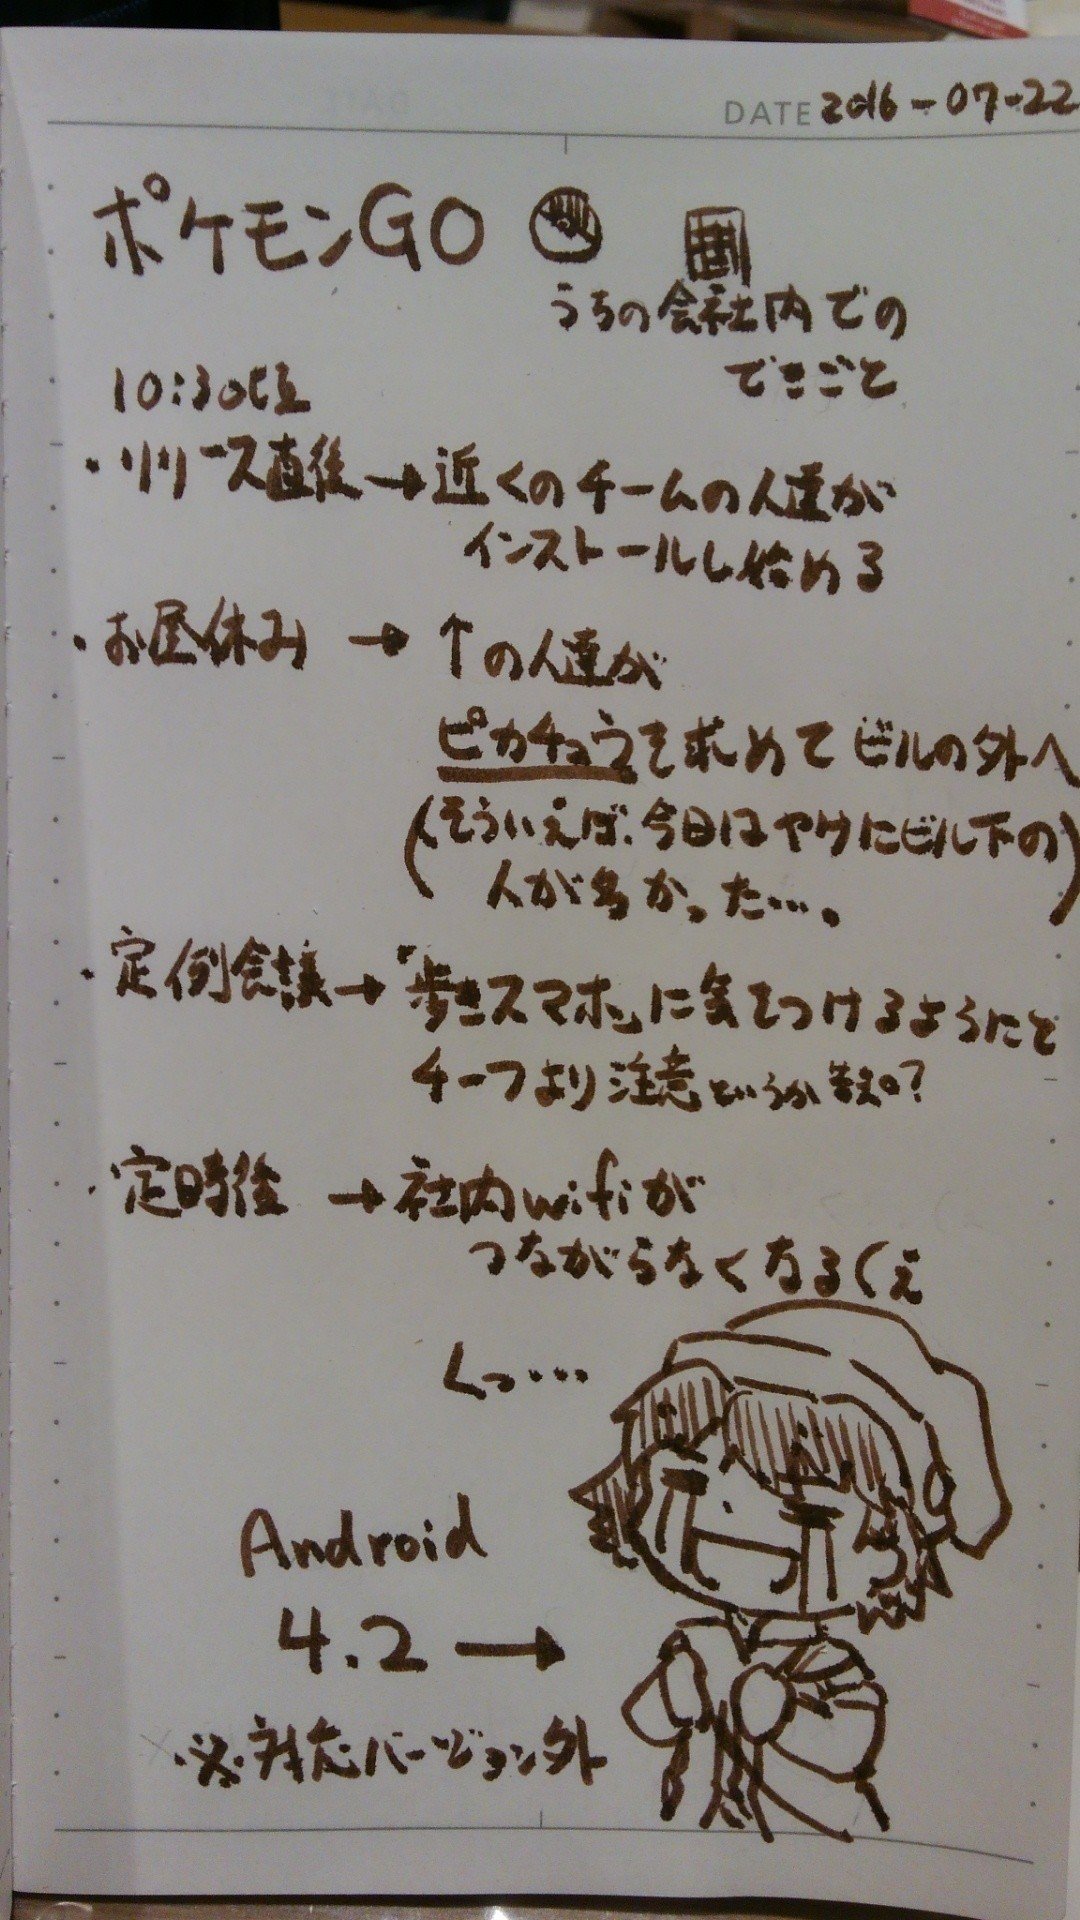 DATE 2016-07-22
ポケモンGO
うちの会社内での
できごと
10:30頃
・リリース直後→近くのチームの人達が
インストールし始める
・お昼休み→↑の人達が
ピカチュウを求めてビルの外へ
(そういえば、今日はやけにビル下の)
人が多かった…。
・定例会議→「歩きスマホ」に気をつけるようにと
チーフより注意というか
?
・定時後→社内wifiが
つながらなくなる(え
くっ…
Android
4.2→
※対応バージョン外